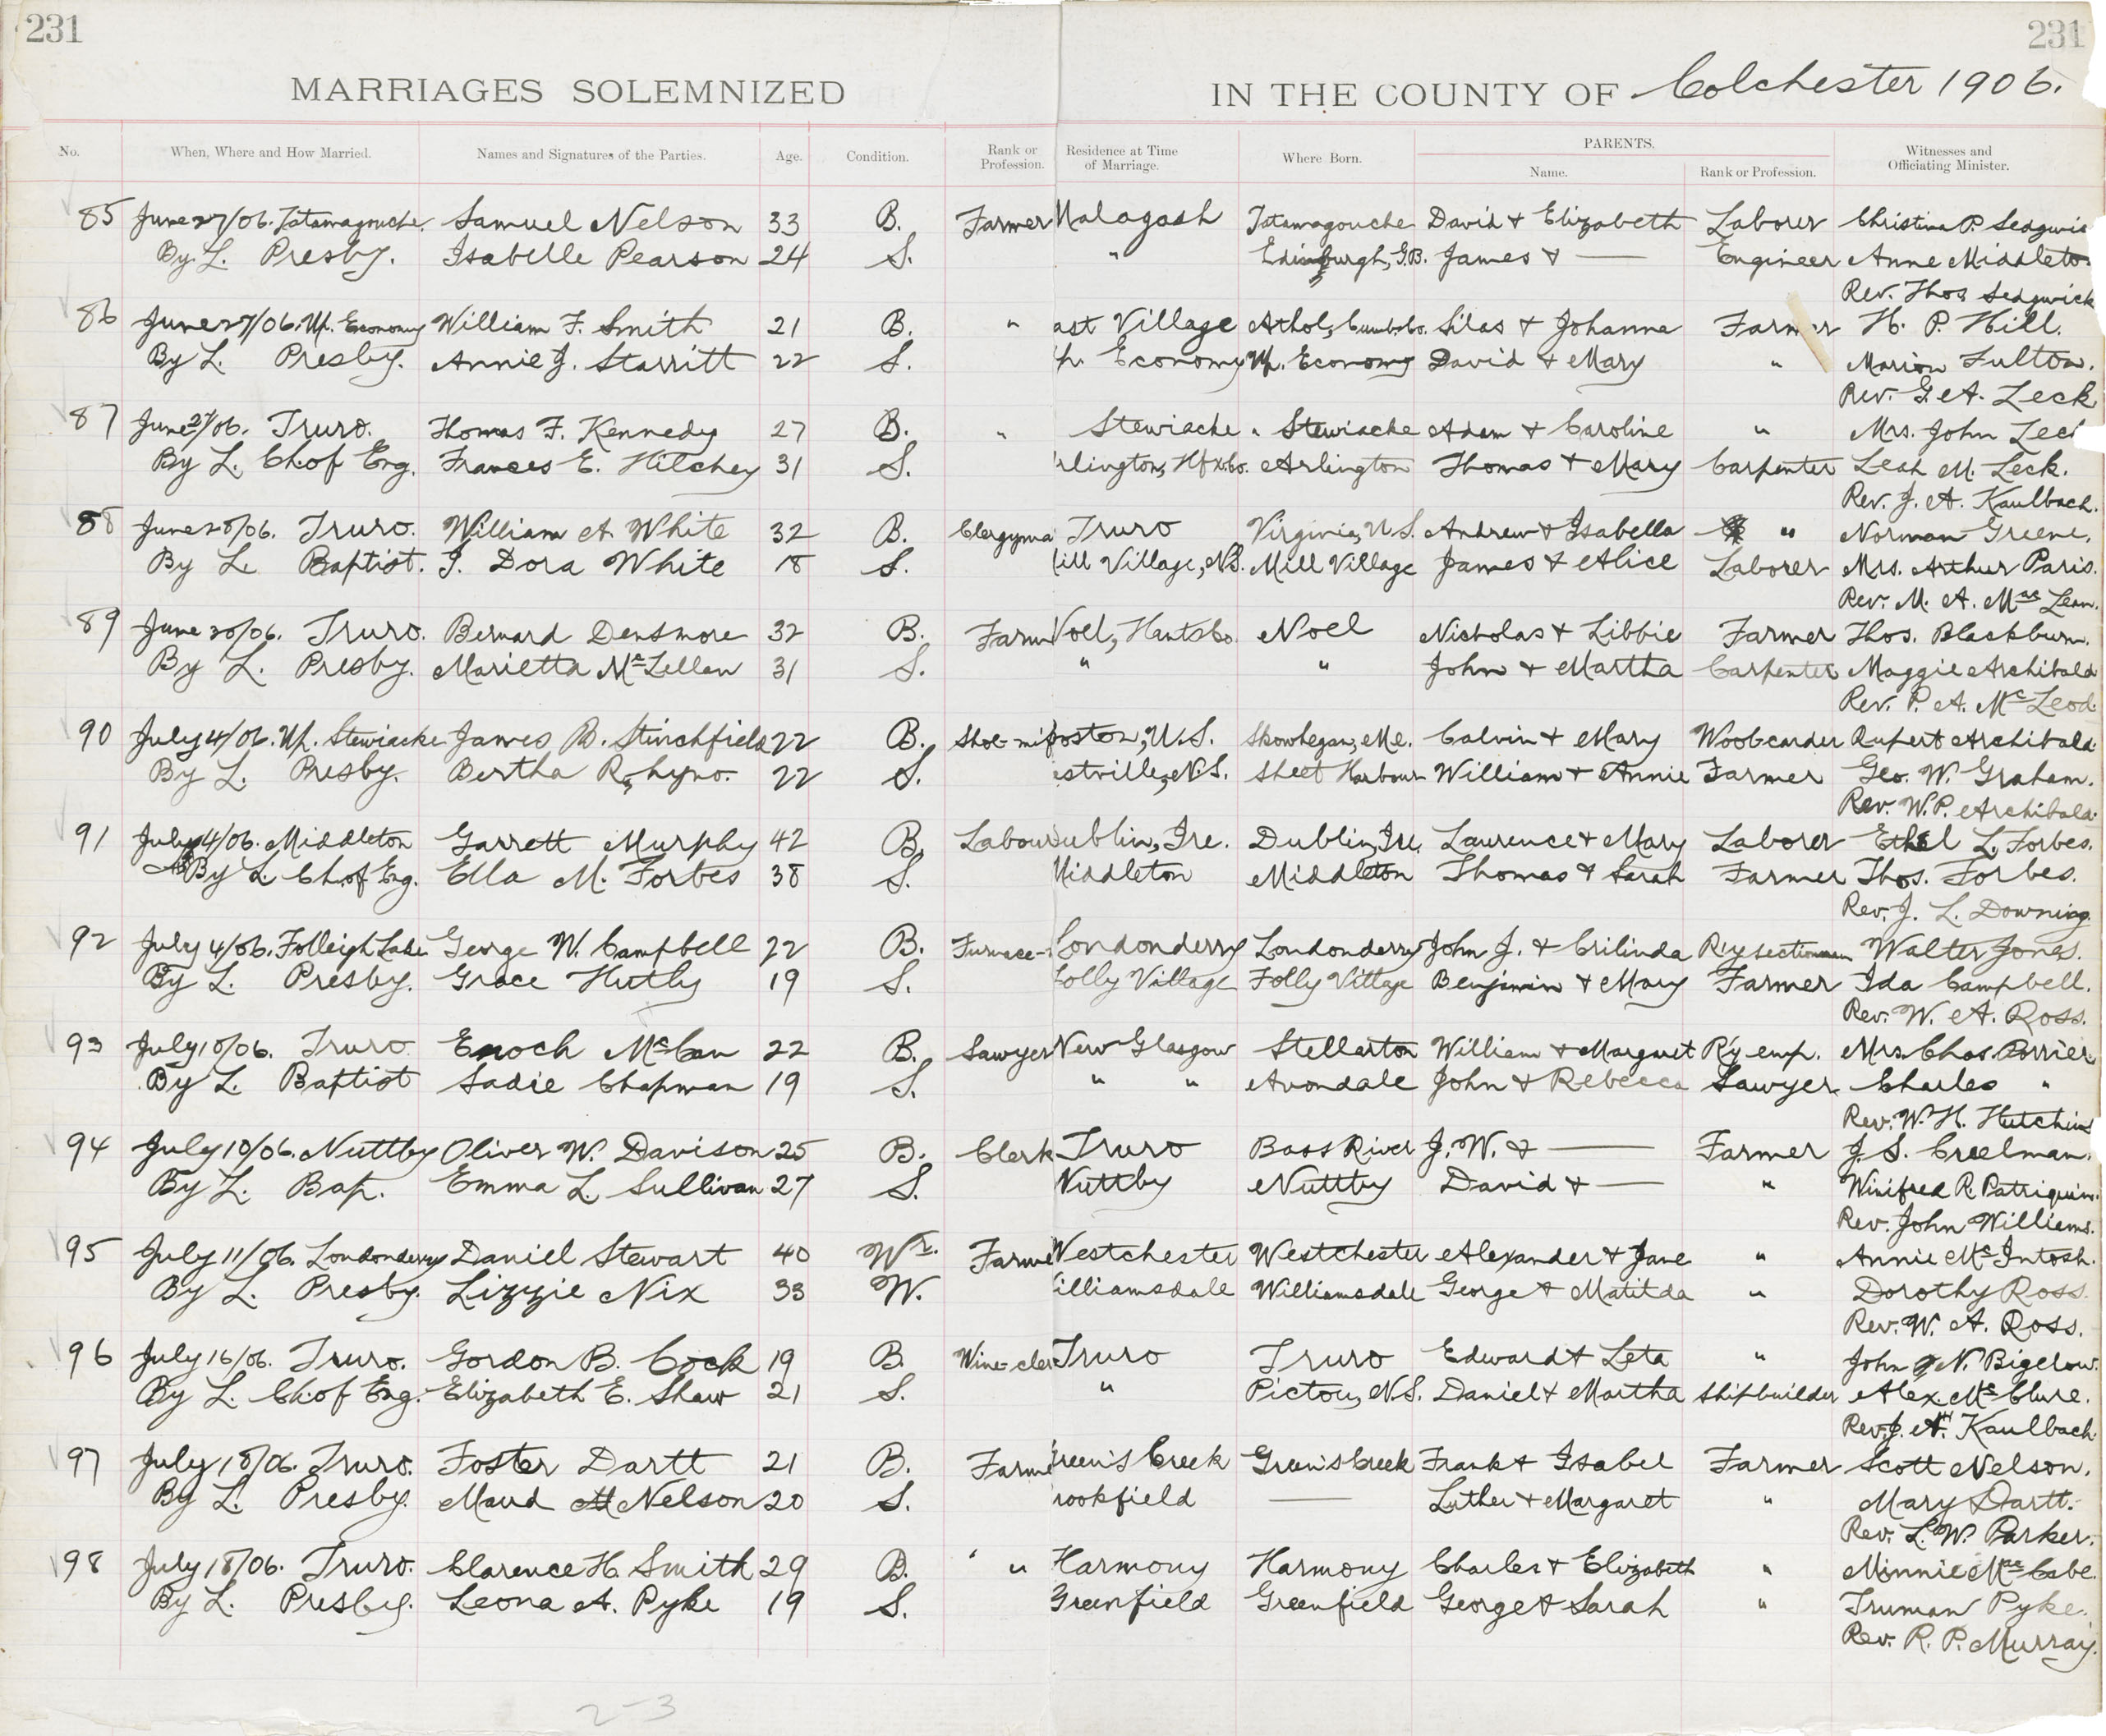 231
231
MARRIAGES SOLEMNIZED IN THE COUNTY OF Colchester 1906.
No. When, Where and How Married. Names and Signatures of the Parties. Age. Condition. Rank or Profession. Residence at Time of Marriage. Where Born. PARENTS. Name. Rank or Profession. Witnesses and Officiating Minister.
85 June 27/06. Tatamagouche. Samuel Nelson 33 B. Farmer Malagash Tatamagouche David & Elizabeth Laborer Christina P. Sedgwic
By L. Presby. Isabelle Pearson 24 S. " Edinburgh, G.B. James & — Engineer Anne Middleto
Rev. Thos. Sedgwick
86 June 27/06. Up. Economy William F. Smith 21 B. " ast Village Athol, Cumb. Co. Silas & Johanna Farmer H. P. Hill.
By L. Presby. Annie J. Starritt 22 S. Economy Up. Economy David & Mary " Marion Fulton.
Rev. G. A. Leck
87 June 27/06. Truro. Thomas F. Kennedy 27 B. " Stewiacke Stewiacke Adam & Caroline " Mrs. John Leck
By L. Ch. of Eng. Frances E. Hilchey 31 S. rlington, Hfx Co. Arlington Thomas & Mary Carpenter Leah M. Leck.
Rev. J. A. Kaulbach.
88 June 28/06. Truro. William A. White 32 B. Clergyma Truro Virginia, U.S. Andrew & Isabella " Norman Greene.
By L. Baptist. I. Dora White 18 S. ill Village, N.S. Mill Village James & Alice Laborer Mrs. Arthur Paris.
Rev. M. A. MacLean.
89 June 28/06. Truro. Bernard Densmore 32 B. Farm Noel, Hants Co. Noel Nicholas & Libbie Farmer Thos. Blackburn.
By L. Presby. Marietta McLellan 31 S. " " John & Martha Carpenter Maggie Archibald
Rev. P. A. McLeod.
90 July 4/06. Up. Stewiacke James B. Stinchfield 22 B. Shoe-m oston, U.S. Skowhegan, Me. Calvin & Mary Woolcarder Rupert Archibald.
By L. Presby. Bertha Rhyno. 22 S. estville, N.S. Sheet Harbour William & Annie Farmer Geo. W. Graham.
Rev. W. P. Archibald.
91 July 4/06. Middleton Garrett Murphy 42 B. Labour ublin, Ire. Dublin, Ire. Laurence & Mary Laborer Ethel L. Forbes.
By L. Ch. of Eng. Ella M. Forbes 38 S. Middleton Middleton Thomas & Sarah Farmer Thos. Forbes.
Rev. J. L. Downing.
92 July 4/06. Folleigh Lake George W. Campbell 22 B. Furnace- Londonderry Londonderry John J. & Crilinda R'y sectionman Walter Jones.
By L. Presby. Grace Hutly 19 S. Folly Village Folly Village Benjamin & Mary Farmer Ida Campbell.
Rev. W. A. Ross.
93 July 10/06. Truro Enoch McCan 22 B. Sawyer New Glasgow Stellarton William & Margaret R'y emp. Mrs. Chas. Porrier
By L. Baptist Sadie Chapman 19 S. " " Avondale John & Rebecca Sawyer Charles "
Rev. W. H. Hutchins
94 July 10/06. Nuttby Oliver W. Davison 25 B. Clerk Truro Bass River J. W. & — Farmer J. S. Creelman.
By L. Bap. Emma L. Sullivan 27 S. Nuttby Nuttby David & — " Winifred R. Patriquin.
Rev. John Williams.
95 July 11/06. Londonderry Daniel Stewart 40 Wr. Farme Westchester Westchester Alexander & Jane " Annie McIntosh.
By L. Presby. Lizzie Nix 33 W. illiamsdale Williamsdale George & Matilda " Dorothy Ross.
Rev. W. A. Ross.
96 July 16/06. Truro. Gordon B. Cock 19 B. Wine-cler Truro Truro Edward & Leta " John N. Bigelow.
By L. Ch. of Eng. Elizabeth E. Shaw 21 S. " Pictou, N.S. Daniel & Martha Shipbuilder Alex. McClure.
Rev. J. A. Kaulbach
97 July 18/06. Truro. Foster Dartt 21 B. Farme reen's Creek Green's Creek Frank & Isabel Farmer Scott Nelson.
By L. Presby. Maud Nelson 20 S. rookfield — Luther & Margaret " Mary Dartt.
Rev. L. W. Parker.
98 July 18/06. Truro. Clarence H. Smith 29 B. " Harmony Harmony Charles & Elizabeth " Minnie MacCabe.
By L. Presby. Leona A. Pyke 19 S. Greenfield Greenfield George & Sarah " Truman Pyke.
Rev. R. P. Murray.
2-3